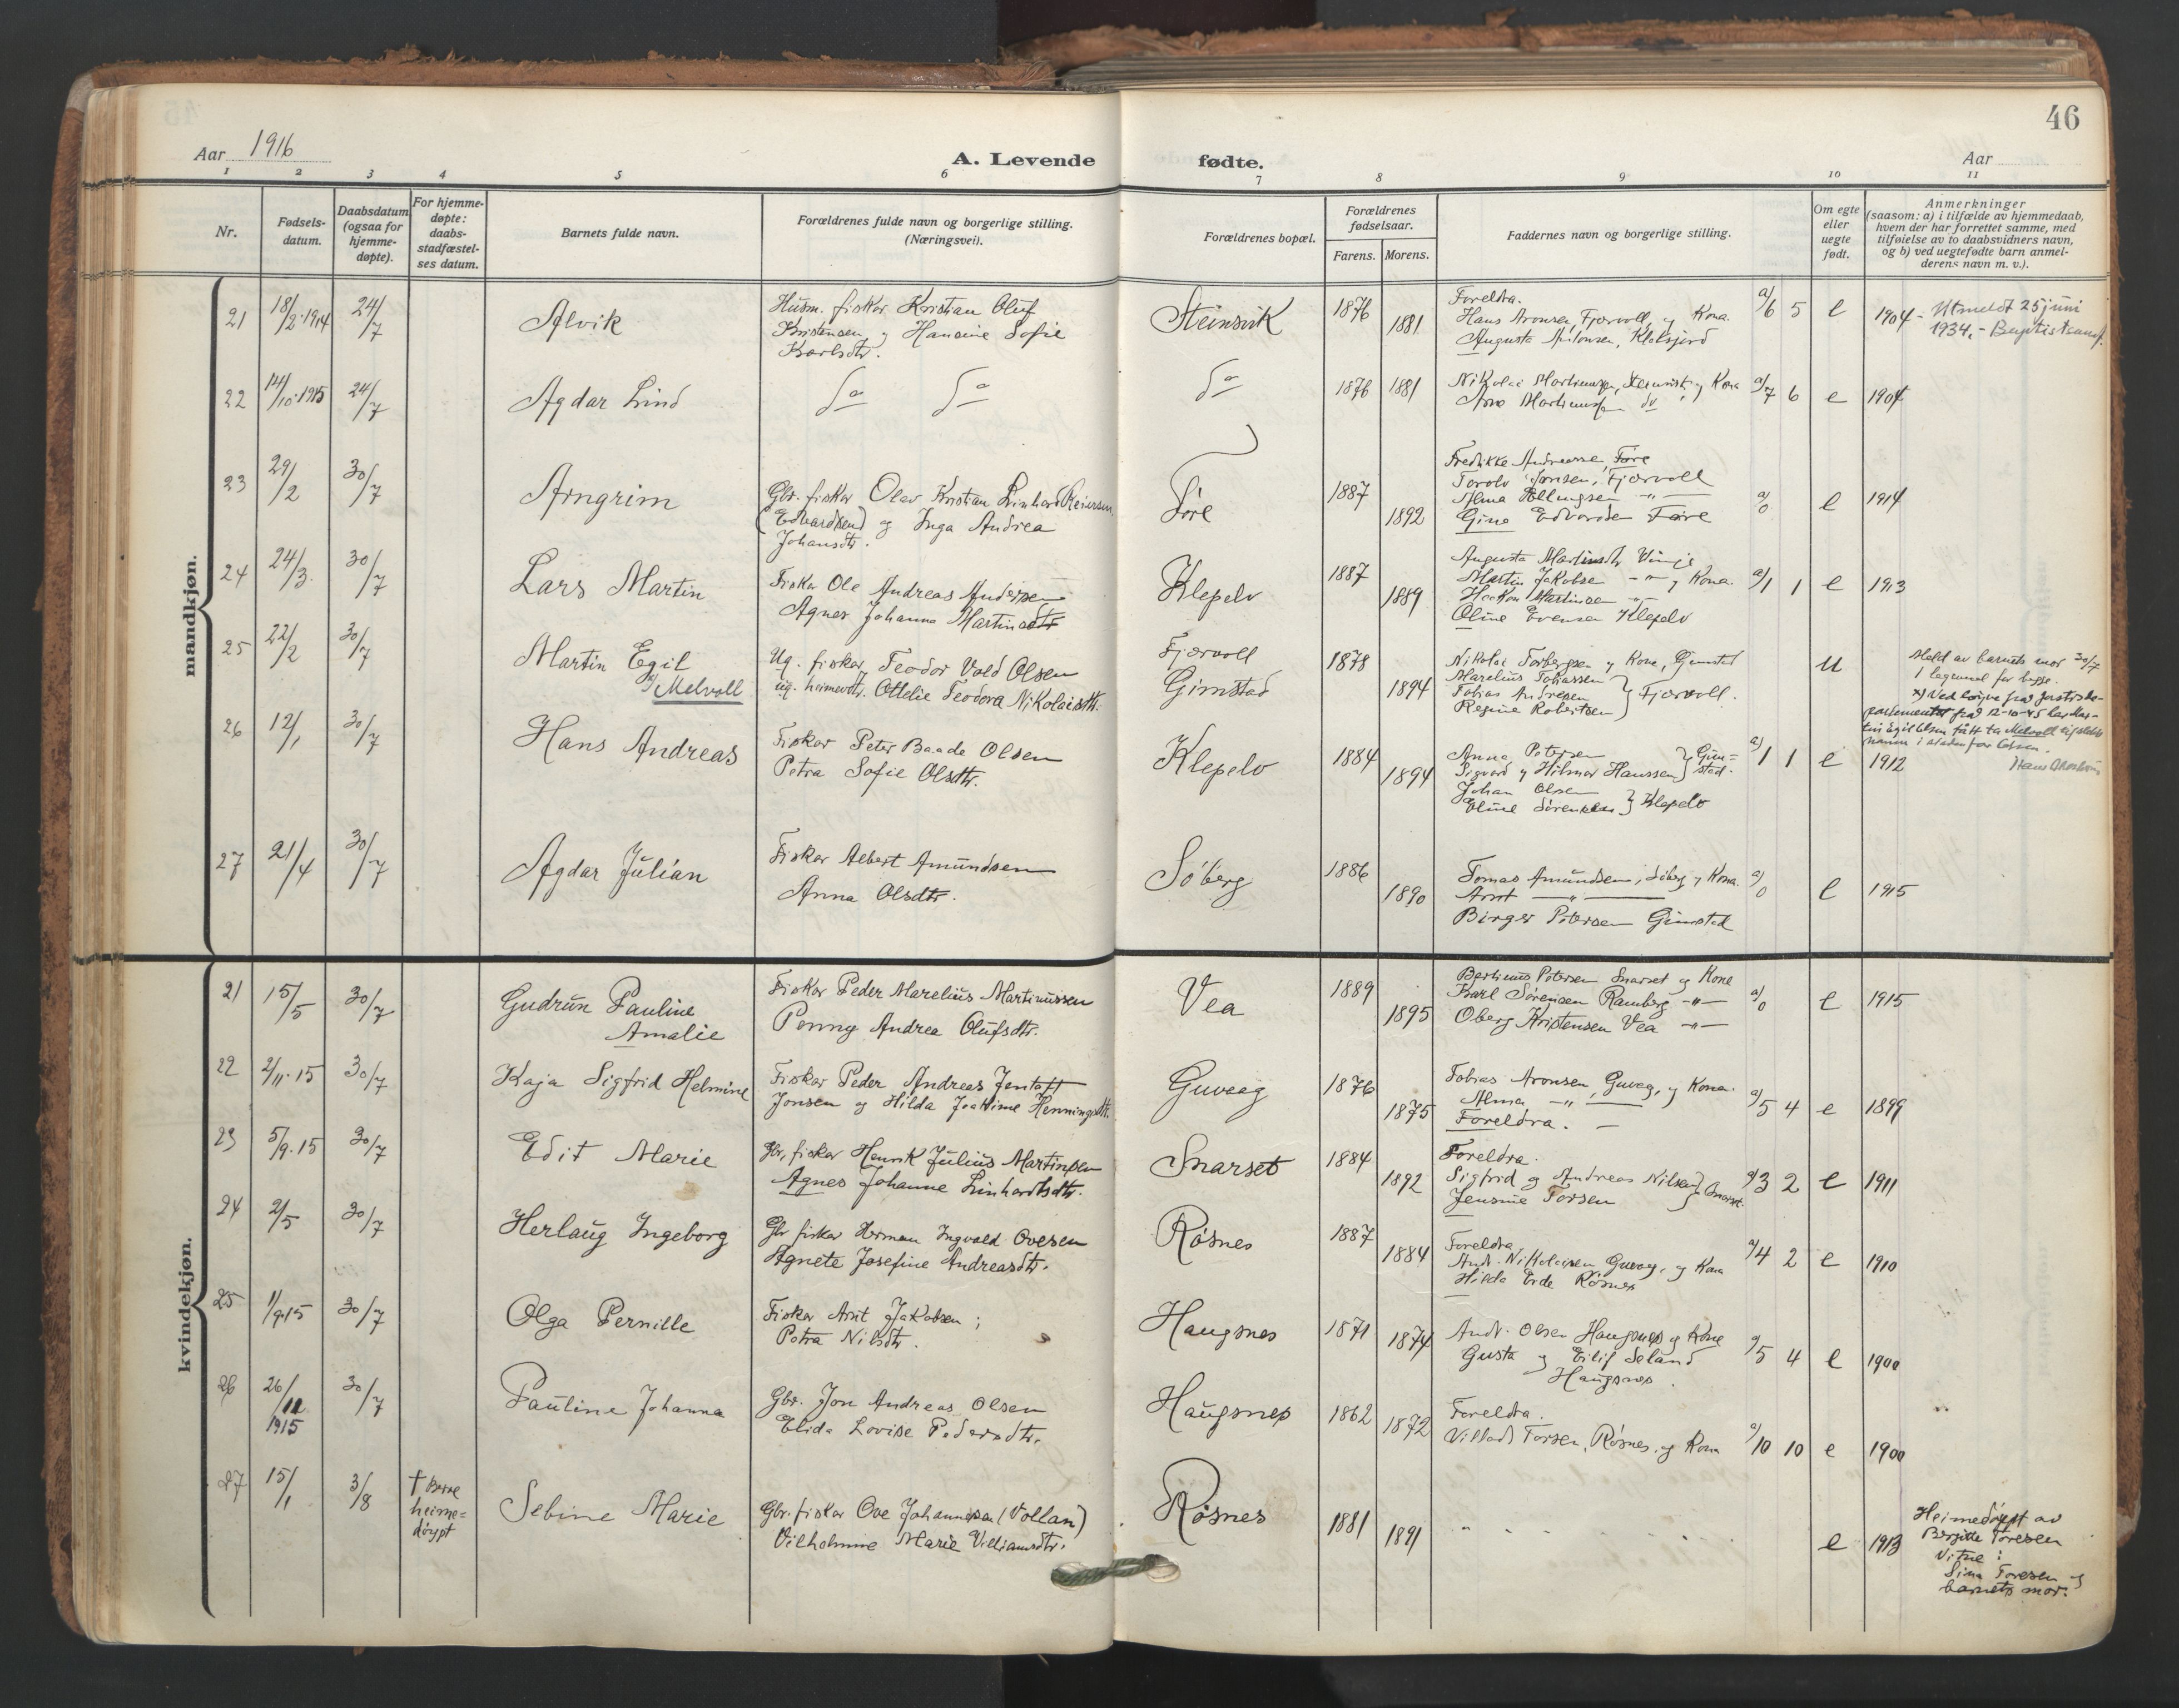 46
Aar 1916
A. Levende
fødte.
Aar
1 2 3 4 5 6 7 8 9 10 11
Nr.
Fødsels-
datum.
Daabsdatum
(ogsaa for
hjemme-
døpte).
For hjemme-
døpte:
daabs-
stadfæstel-
ses datum.
Barnets fulde navn.
Forældrenes fulde navn og borgerlige stilling.
(Næringsvei).
Forældrenes bopæl.
Forældrenes
fødselsaar.
Farens. Morens.
Faddernes navn og borgerlige stilling.
Om egte
eller
uegte
født.
Anmerkninger
(saasom: a) i tilfælde av hjemmedaab,
hvem der har forrettet samme, med
tilføielse av to daabsvidners navn,
og b) ved uegtefødte barn anmel-
derens navn m. v.).
mandkjøn.
21 18/2.1914 24/7 Alvik
Husm. fisker Kristian Oluf
Kristensen og Hansine Sofie
Karlsdtr.
Steinsvik 1876 1881
Foreldra.
Hans Aronsen, Fjærvoll, og Kona.
Augusta Antonsen, Klaksjord
a/6 5 e 1904 - Utmeldt 25 juni
1934, - Baptistsamf.
22 14/10.1915 24/7 Agdar Lind Do Do Do 1876 1881
Nikolai Martinussen, Steinsvik, og Kona
Arne Martinussen do
a/7 6 e 1904
23 29/2 30/7 Arngrim
Gbr. fisker Olav Kristian Linhard Reiersen
(Edvardsen) og Inga Andrea
Johansdtr.
Føre 1887 1892
Fredrikke Andreassen, Føre
Torolv Jonsen, Fjærvoll
Alma Ellingsen -"-
Gina Edvardsen Føre
a/0 e 1914
24 24/3. 30/7 Lars Martin
Fisker Ole Andreas Andersen
Agnes Johanna Martinsdtr
Klepelv 1887 1889
Augusta Martinsdtr Vinje
Martin Jakobsen -"- og Kona.
Haakon Martinsen -"-
Oline Evensen Klepelv
a/1 1 e 1913
25 22/2 30/7 Martin Egil
x) Melvoll
Ug. fisker Teodor Vold Olsen
ug. heimevdtr. Ottelie Teodora Nikolaisdtr.
Fjærvoll
Gimstad
1878 1894
Nikolai Torbergsen og Kone, Gimstad
Marelius Tobiassen
Tobias Andresen } Fjærvoll.
Regine Robertsen
u
Meld av barnets mor 30/7
1 legemal for begge.
x) Ved løyve frå Justisde-
partementet frå 12-10-45 har Mar-
tin Egil Olsen fått ta Melvoll til slekts-
namn i staden for Olsen.
26 12/1 30/7 Hans Andreas
Fisker Peter Baade Olsen
Petra Sofie Olsdtr.
Klepelv 1884 1894
Anna Petersen } Gim=
Sigvard og Hilmar Hanssen } stad.
Johan Olsen
Eline Sørensen } Klepelv
a/1 1 e 1912
27 21/4 30/7 Agdar Julian
Fisker Albert Amundsen
Anna Olsdtr.
Søberg 1886 1890
Tomas Amundsen, Søberg og Kona.
Arnt -"-
Birger Petersen Gimstad
a/0 e 1915
kvindekjøn.
21 15/5 30/7 Gudrun Pauline
Amalie
Fisker Peder Marelius Martinussen
Penny Andrea Olufsdtr.
Vea 1889 1895
Bertinus Petersen Snarset og Kone
Karl Sørensen Ramberg -"-
Oberg Kristensen Vea -"-
a/0 e 1915
22 2/11.15 30/7 Kaja Sigfrid Helmine
Fisker Peder Andreas Jentoft
Jonsen og Hilda Joakime Henningsdtr.
Guvaag 1876 1875
Tobias Aronsen, Guvag, og Kona.
Alma -"-
Foreldra.
a/5 4 e 1899
23 5/9.15 30/7 Edit Marie
Gbr. fisker Henrik Julius Martinsen
Agnes Johanne Linhardsdtr.
Snarset 1884 1892
Foreldra.
Sigfrid og Andreas Nilsen } Snarset.
Jensine Torsen
a/3 2 e 1911
24 2/5 30/7 Herlaug Ingeborg
Gbr fisker Herman Ingvald Ovesen
Agnete Josefine Andreasdtr.
Røsnes 1887 1884
Foreldra
Andr. Nikolaisen Guvag, og Kona
Hilda Eide Røsnes
a/4 2 e 1910
25 1/9.15 30/7 Olga Pernille
Fisker Arnt Jakobsen;
Petra Nilsdtr.
Haugsnes 1871 1874
Andr. Olsen Haugsnes og Kone
Gusta og Eilif Seland
Haugsnes.
a/5 4 e 1900
26 26/11 1915 30/7 Pauline Johanna
Gbr. Jon Andreas Olsen
Elida Lovise Pedersdtr.
Haugsnes 1862 1872
Foreldra.
Villads Torsen, Røsnes, og Kona
a/10 10 e 1900
27 15/1 3/8 † Berre
heime=
døypt
Sebine Marie
Gbr. fisker Ove Johannesen (Vollan)
Vilhelmine Marie Villiamsdtr.
Røsnes 1881 1891
e 1913
Heimedøypt av
Bergitte Toresen
Vitne:
Sina Toresen og
barnets mor.